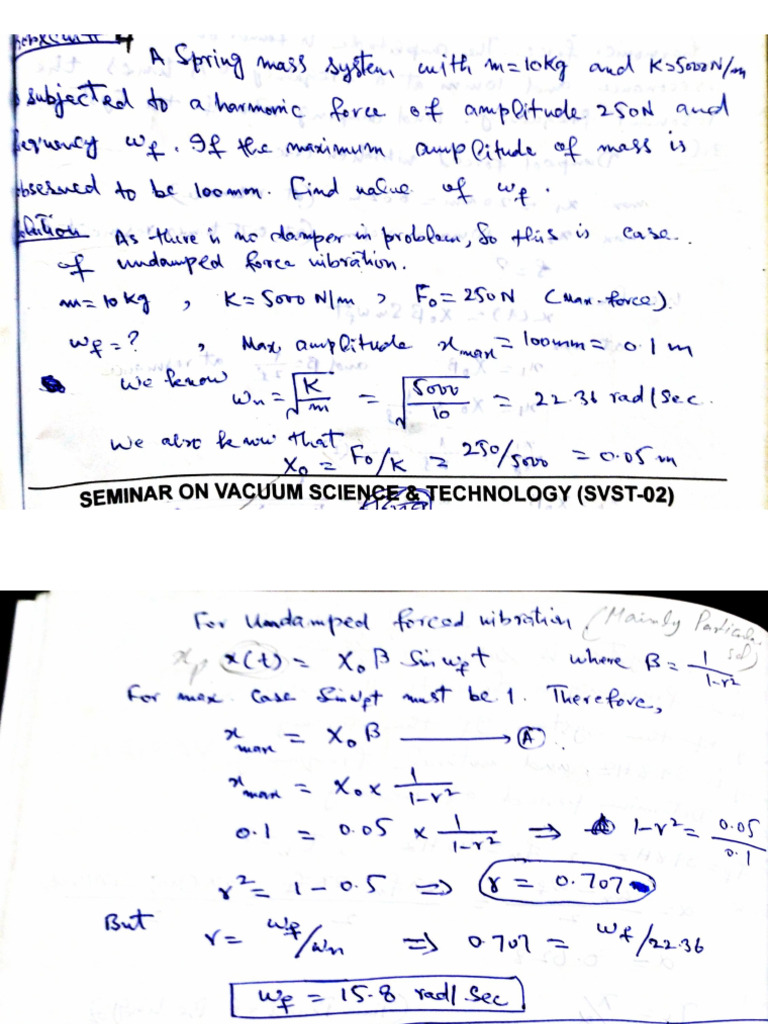 A Spring mass system with m=10kg and K=5000N/m
subjected to a harmonic force of amplitude 250N and
frequency ωf. If the maximum amplitude of mass is
observed to be 100mm. Find value of ωf.
Solution As there is no damper in problem, So this is case.
of undamped force vibration.
m=10kg , K=5000 N/m , F0=250N (Max.force).
ωf=? , Max amplitude xmax=100mm=0.1m
We know ωn=√K/m = √5000/10 = 22.36 rad/Sec.
We also know that
X0 = F0/K = 250/5000 = 0.05m
SEMINAR ON VACUUM SCIENCE & TECHNOLOGY (SVST-02)
For Undamped forced vibration (Mainly Particular
sol)
xp x(t) = X0 β Sinωft where β = 1/1-r²
For max. case Sinωft must be 1. Therefore,
xmax = X0 β → (A)
xmax = X0 × 1/1-r²
0.1 = 0.05 × 1/1-r² ⇒ 1-r² = 0.05/0.1
r² = 1-0.5 ⇒ r = 0.707
But r = ωf/ωn ⇒ 0.707 = ωf/22.36
ωf = 15.8 rad/sec